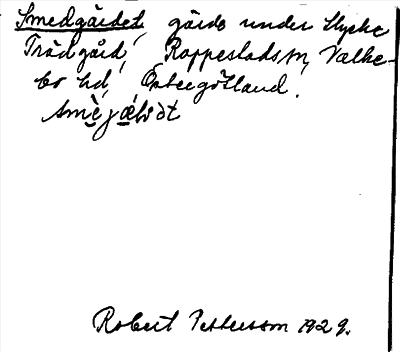 Smedgärdet, gärde under Stycke
Trädgård, Rappestads sn, Valke-
bo hd, Östergötland.
Robert Pettersson 1929.